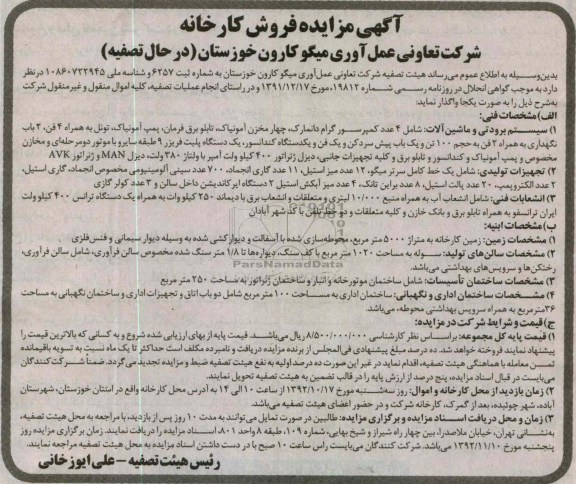 آگهی مزایده فروش کارخانه
شرکت تعاونی عمل آوری میگو کارون خوزستان (در حال تصفیه)
بدین‌وسیله به اطلاع عموم می‌رساند هیئت تصفیه شرکت تعاونی عمل‌آوری میگو کارون خوزستان به شماره ثبت ۶۲۵۷ و شناسه ملی ۱۰۸۶۰۷۲۲۹۴۵ در نظر
دارد به موجب گواهی انحلال در روزنامه رسمی شماره ۱۹۸۱۲، مورخ ۱۳۹۱/۱۲/۱۷ و در راستای انجام عملیات تصفیه، کلیه اموال منقول و غیر منقول شرکت
به‌شرح ذیل را به صورت یکجا واگذار نماید:
الف) مشخصات فنی:
۱) سیستم برودتی و ماشین آلات: شامل ۴ عدد کمپرسور گرام دانمارک، چهار مخزن آمونیاک، تابلو برق فرمان، پمپ آمونیاک، تونل به همراه ۴ فن، ۲ باب
نگهداری به همراه ۲ فن به حجم ۱۰۰ تن و یک باب پیش سردکن و یک فن و یکدستگاه کندانسور، یک دستگاه پلیت فریزر ۹ طبقه سابرو با موتور دو مرحله‌ای و مخازن
مخصوص و پمپ آمونیاک و کندانسور و تابلو برق و کلیه تجهیزات جانبی، دیزل ژنراتور ۴۰۰ کیلو ولت آمپر با ولتاژ ۳۸۰ ولت، دیزل MAN و ژنراتور AVK
۲) تجهیزات تولیدی: شامل یک خط کامل سرتر میگو، ۱۲ عدد میز استیل، ۱۱ عدد گاری انجماد، ۷۰۰ عدد سینی آلومینیومی مخصوص انجماد، گاری استیل،
۲ عدد الکتروپمپ، ۲۰ عدد پالت استیل، ۸ عدد براین تانک، ۴ عدد میز آبکش استیل ۲ دستگاه ایرکاندیشن داخل سالن و ۳ عدد کولر گازی
۳) انشعابات فنی: شامل انشعاب آب به همراه منبع ۱۰/۰۰۰ لیتری و متعلقات و انشعاب برق با دیماند ۲۵۰ کیلو وات به همراه یک دستگاه ترانس ۴۰۰ کیلو ولت
ایران ترانسفو به همراه تابلو برق و بانک خازن و کلیه متعلقات و دو خط تلفن با کد شهر آبادان
ب) مشخصات ابنیه:
۱) مشخصات زمین: زمین کارخانه به متراژ ۵۰۰۰ متر مربع، محوطه‌سازی شده با آسفالت و دیوارکشی شده به وسیله دیوار سیمانی و فنس فلزی
۲) مشخصات سالن‌های تولید: سوله به مساحت ۱۰۲۰ متر مربع با کف سنگ، دیواره‌ها تا ۱/۸ متر سنگ شده مخصوص سالن فرآوری، شامل سالن فرآوری،
رختکن‌ها و سرویس‌های بهداشتی می‌باشد.
۳) مشخصات ساختمان تأسیسات: شامل ساختمان موتورخانه و انبار و ساختمان ژنراتور به مساحت ۲۵۰ متر مربع
۴) مشخصات ساختمان اداری و نگهبانی: ساختمان اداری به مساحت ۱۰۰ متر مربع شامل دو باب اتاق و تجهیزات اداری و ساختمان نگهبانی به مساحت
۳۶ متر مربع به همراه سرویس بهداشتی محوطه، می‌باشد.
ج) قیمت و شرایط شرکت در مزایده:
۱) قیمت پایه کل مجموعه: براساس نظر کارشناسی ۸/۵۰۰/۰۰۰/۰۰۰ ریال می‌باشد. قیمت پایه از بهای ارزیابی شده شروع و به کسانی که بالاترین قیمت را
پیشنهاد نمایند فروخته خواهد شد. ده درصد مبلغ پیشنهادی فی‌المجلس از برنده مزایده دریافت و نامبرده مکلف است حداکثر تا یک ماه نسبت به تسویه باقیمانده
ثمن معامله با هماهنگی هیئت تصفیه، اقدام نماید در غیر این صورت ده درصد اولیه به نفع هیئت تصفیه ضبط و مزایده تجدید می‌گردد. ضمناً شرکت کنندگان
می‌بایست در قبال اسناد مزایده، پنج درصد از ارزش پایه را در قالب تضمین به هیئت تصفیه تحویل نمایند.
۲) زمان بازدید از محل کارخانه و اموال: روز سه‌شنبه مورخ ۱۳۹۲/۱۰/۱۷ از ساعت ۱۰ الی ۱۴ به آدرس محل کارخانه واقع در استان خوزستان، شهرستان
آباده، شهر چوئبده، بعد از گمرک، کارخانه شرکت و در حضور اعضای هیئت تصفیه می‌باشد.
۳) زمان و محل دریافت اسناد مزایده و برگزاری مزایده: طالبین در صورت تمایل می‌توانند به مدت ۱۰ روز پس از بازدید، با مراجعه به محل هیئت تصفیه،
به‌نشانی تهران، خیابان ملاصدرا، بین چهار راه شیراز و شیخ بهایی، شماره ۱۰۹، طبقه ۸ واحد ۸۰۱، اسناد مزایده را دریافت نمایند. زمان برگزاری مزایده روز
پنجشنبه مورخ ۱۳۹۲/۱۱/۱۰ می‌باشد. شرکت کنندگان می‌بایست راس ساعت ۱۰ صبح با در دست داشتن اسناد مزایده به محل هیئت تصفیه مراجعه نمایند.
رئیس هیئت تصفیه - علی ایوزخانی
ParsNamadData